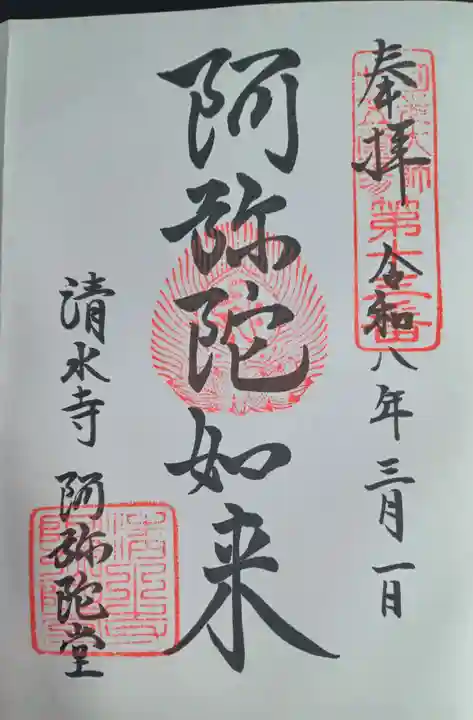 奉拝 令和八年三月一日
阿弥陀如来
清水寺 阿弥陀堂